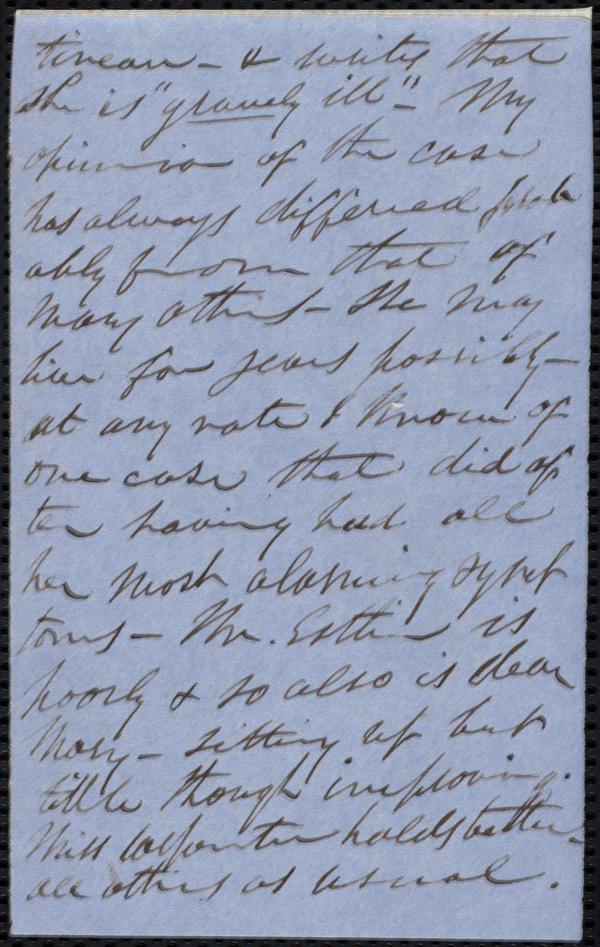 tineau – & writes that
she is "gravely ill" – My
opinion of the case
has always differed prob
ably from that of
many others – She may
live for years possibly –
at any rate I know of
one case that did af
ter having had all
her most alarming symp
toms – Mr. Estlin is
poorly & so also is dear
Mary – sitting up but
little though improving.
Miss Carpenter holds better –
all others as usual.